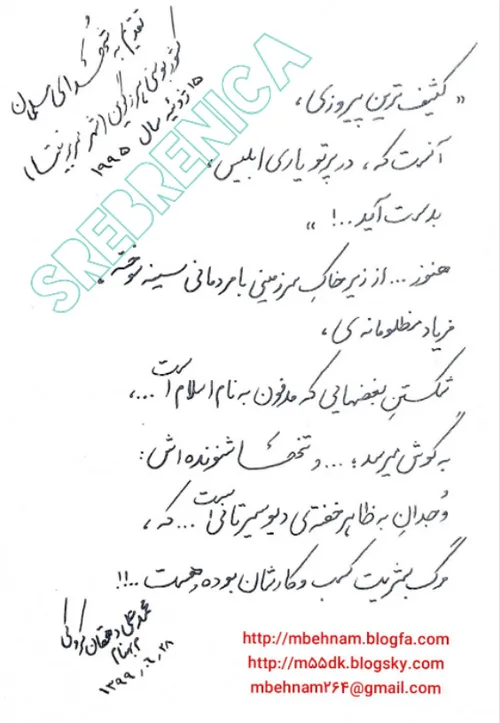 تقدیم به شهدای مسلمان
کشور بوسنی هرزگوین (شهر سربرنیتسا)
۱۵ ژوئیه سال ۱۹۹۵
SREBRENICA
« کثیف‌ترین پیروزی،
آنست که، در پرتو یاری ابلیس،
بدست آید..! »
هنوز ... از زیر خاکِ سرزمینی با مردمانی سینه سوخته،
فریاد مظلومانه‌ی،
شکستنِ بغضهایی که مدفون به نام اسلام است ...،
به گوش میرسد؛ ... و تنها شنونده‌اش:
وجدانِ به ظاهر خفته‌ی دیوسیرتانی است ... که،
مرگ بشریت کسب و کارشان بوده و هست ..!!
محمدعلی دهقان کروکی
م بهنام
۱۳۹۹,۰۶,۲۸
http://mbehnam.blogfa.com
http://m۵۵dk.blogsky.com
mbehnam۲۶۴@gmail.com